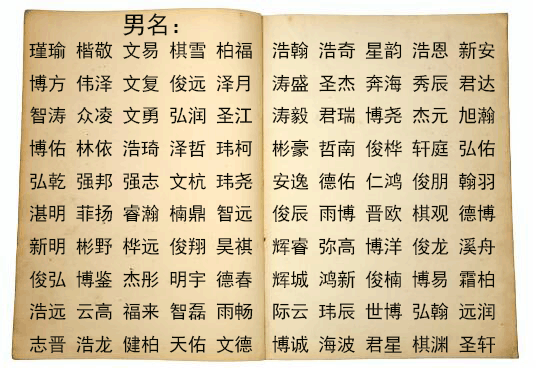 男名：
瑾瑜 楷敬 文易 棋雪 柏福
博方 伟泽 文复 俊远 泽月
智涛 众凌 文勇 弘润 圣江
博佑 林依 浩琦 泽哲 玮柯
弘乾 强邦 强志 文杭 玮尧
湛明 菲扬 睿瀚 楠鼎 智远
新明 彬野 桦远 俊翔 昊祺
俊弘 博鉴 杰彤 明宇 德春
浩远 云高 福来 智磊 雨畅
志晋 浩龙 健柏 天佑 文德
浩翰 浩奇 星韵 浩恩 新安
涛盛 圣杰 奔海 秀辰 君达
涛毅 君瑞 博尧 杰元 旭瀚
彬豪 哲南 俊桦 轩庭 弘佑
安逸 德佑 仁鸿 俊朋 翰羽
俊辰 雨博 晋欧 棋观 德博
辉睿 弥高 博洋 俊龙 溪舟
辉城 鸿新 俊楠 博易 霜柏
际云 玮辰 世博 弘翰 远润
博诚 海波 君星 棋渊 圣轩